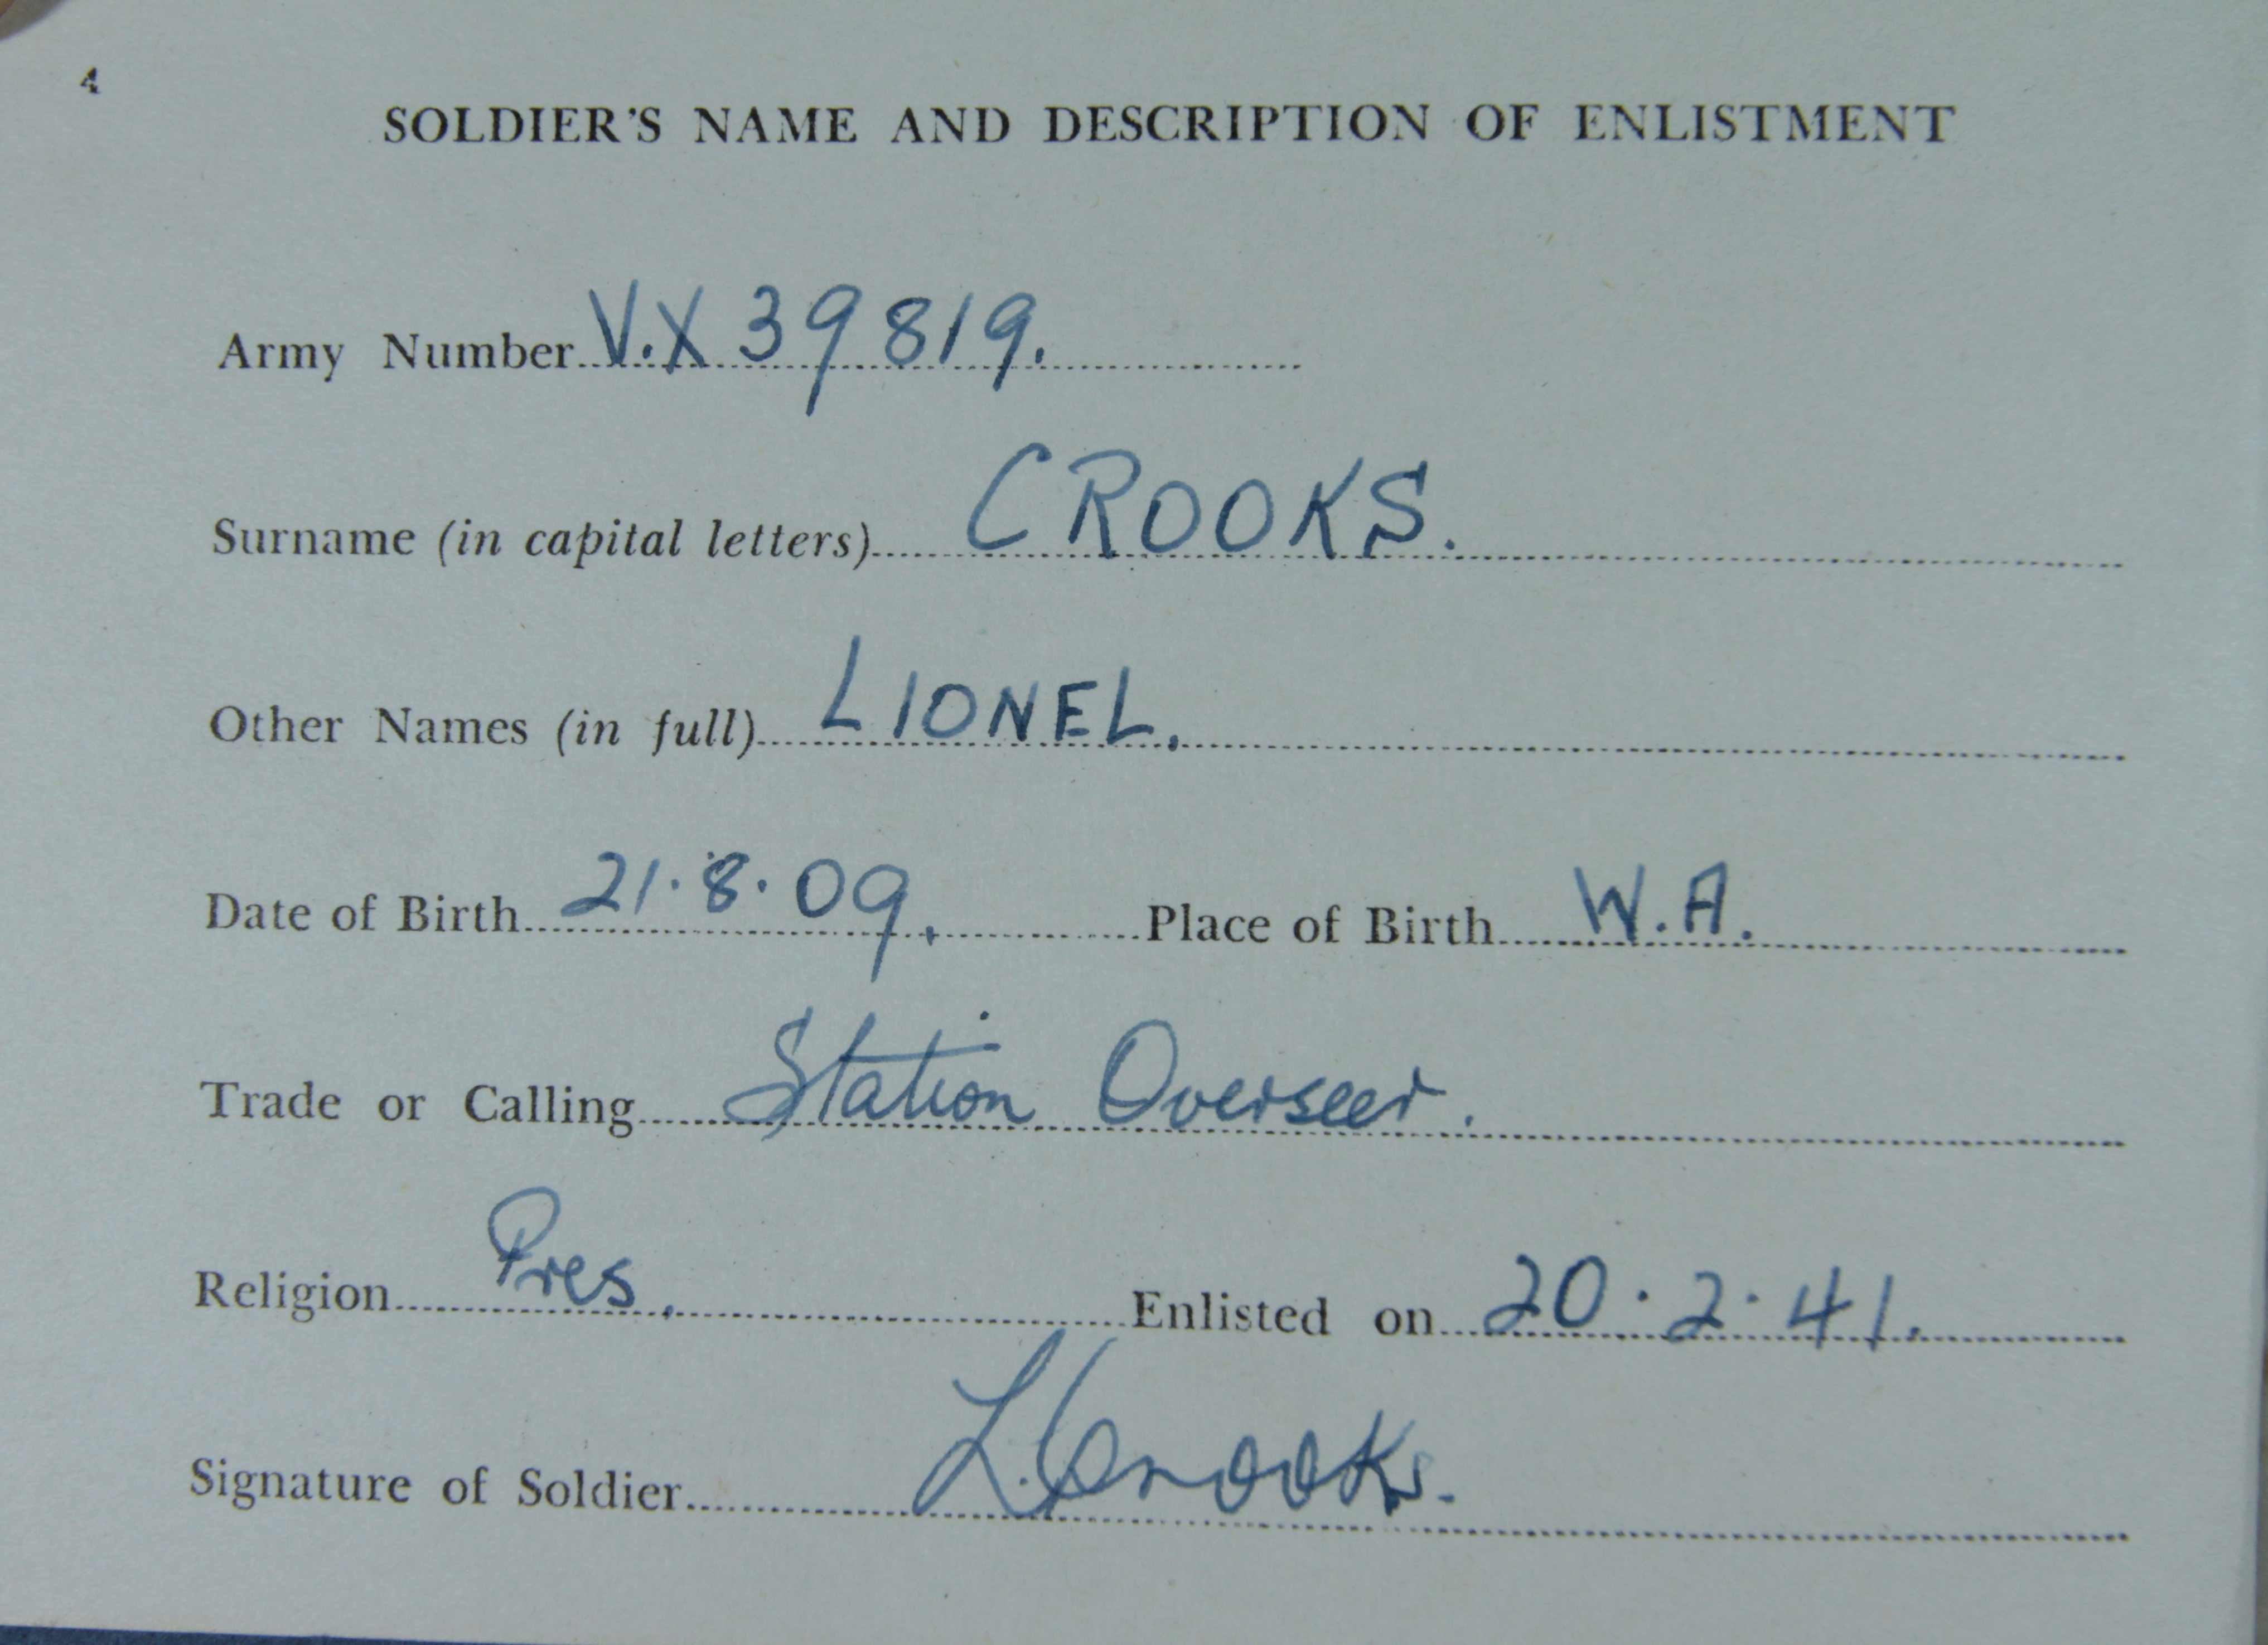 4
SOLDIER'S NAME AND DESCRIPTION OF ENLISTMENT
Army Number V.X 39819.
Surname (in capital letters) CROOKS.
Other Names (in full) LIONEL.
Date of Birth 21.8.09. Place of Birth W.A.
Trade or Calling Station Overseer.
Religion Pres. Enlisted on 20.2.41.
Signature of Soldier L. Crooks.